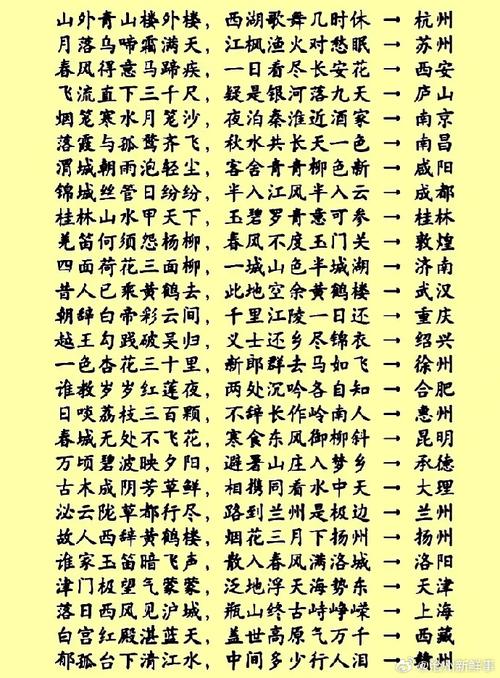 山外青山楼外楼，西湖歌舞几时休 → 杭州
月落乌啼霜满天，江枫渔火对愁眠 → 苏州
春风得意马蹄疾，一日看尽长安花 → 西安
飞流直下三千尺，疑是银河落九天 → 庐山
烟笼寒水月笼沙，夜泊秦淮近酒家 → 南京
落霞与孤鹜齐飞，秋水共长天一色 → 南昌
渭城朝雨浥轻尘，客舍青青柳色新 → 咸阳
锦城丝管日纷纷，半入江风半入云 → 成都
桂林山水甲天下，玉碧罗青意可参 → 桂林
羌笛何须怨杨柳，春风不度玉门关 → 敦煌
四面荷花三面柳，一城山色半城湖 → 济南
昔人已乘黄鹤去，此地空余黄鹤楼 → 武汉
朝辞白帝彩云间，千里江陵一日还 → 重庆
越王勾践破吴归，义士还乡尽锦衣 → 绍兴
一色杏花三十里，新郎群去马如飞 → 徐州
谁救岁岁红莲夜，两处沉吟各自知 → 合肥
日啖荔枝三百颗，不辞长作岭南人 → 惠州
春城无处不飞花，寒食东风御柳斜 → 昆明
万顷碧波映夕阳，避暑山庄入梦乡 → 承德
古木成阴芳草鲜，相携同看水中天 → 大理
泌云陇草都行尽，路到兰州是极边 → 兰州
故人西辞黄鹤楼，烟花三月下扬州 → 扬州
谁家玉笛暗飞声，散入春风满洛城 → 洛阳
津门极望气蒙蒙，泛地浮天海势东 → 天津
落日西风见沪城，瓶山终古峙峥嵘 → 上海
白宫红殿湛蓝天，盖世高原气万千 → 西藏
郁孤台下清江水，中间多少行人泪 → 赣州